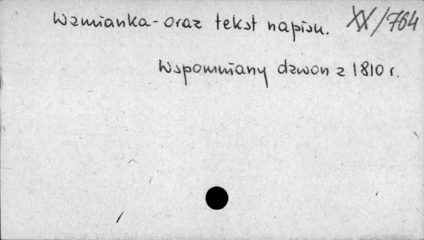 Wzmianka - oraz tekst napisu. XX/764
Wspomniany dzwon z 1810 r.